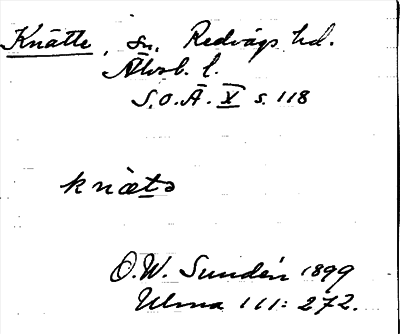 Knätte, sn. Redvägs hd.
Älvsb. l.
S.O.Ä. X s. 118
knætə
O.W. Sundén 1899
Ulma 111: 272.